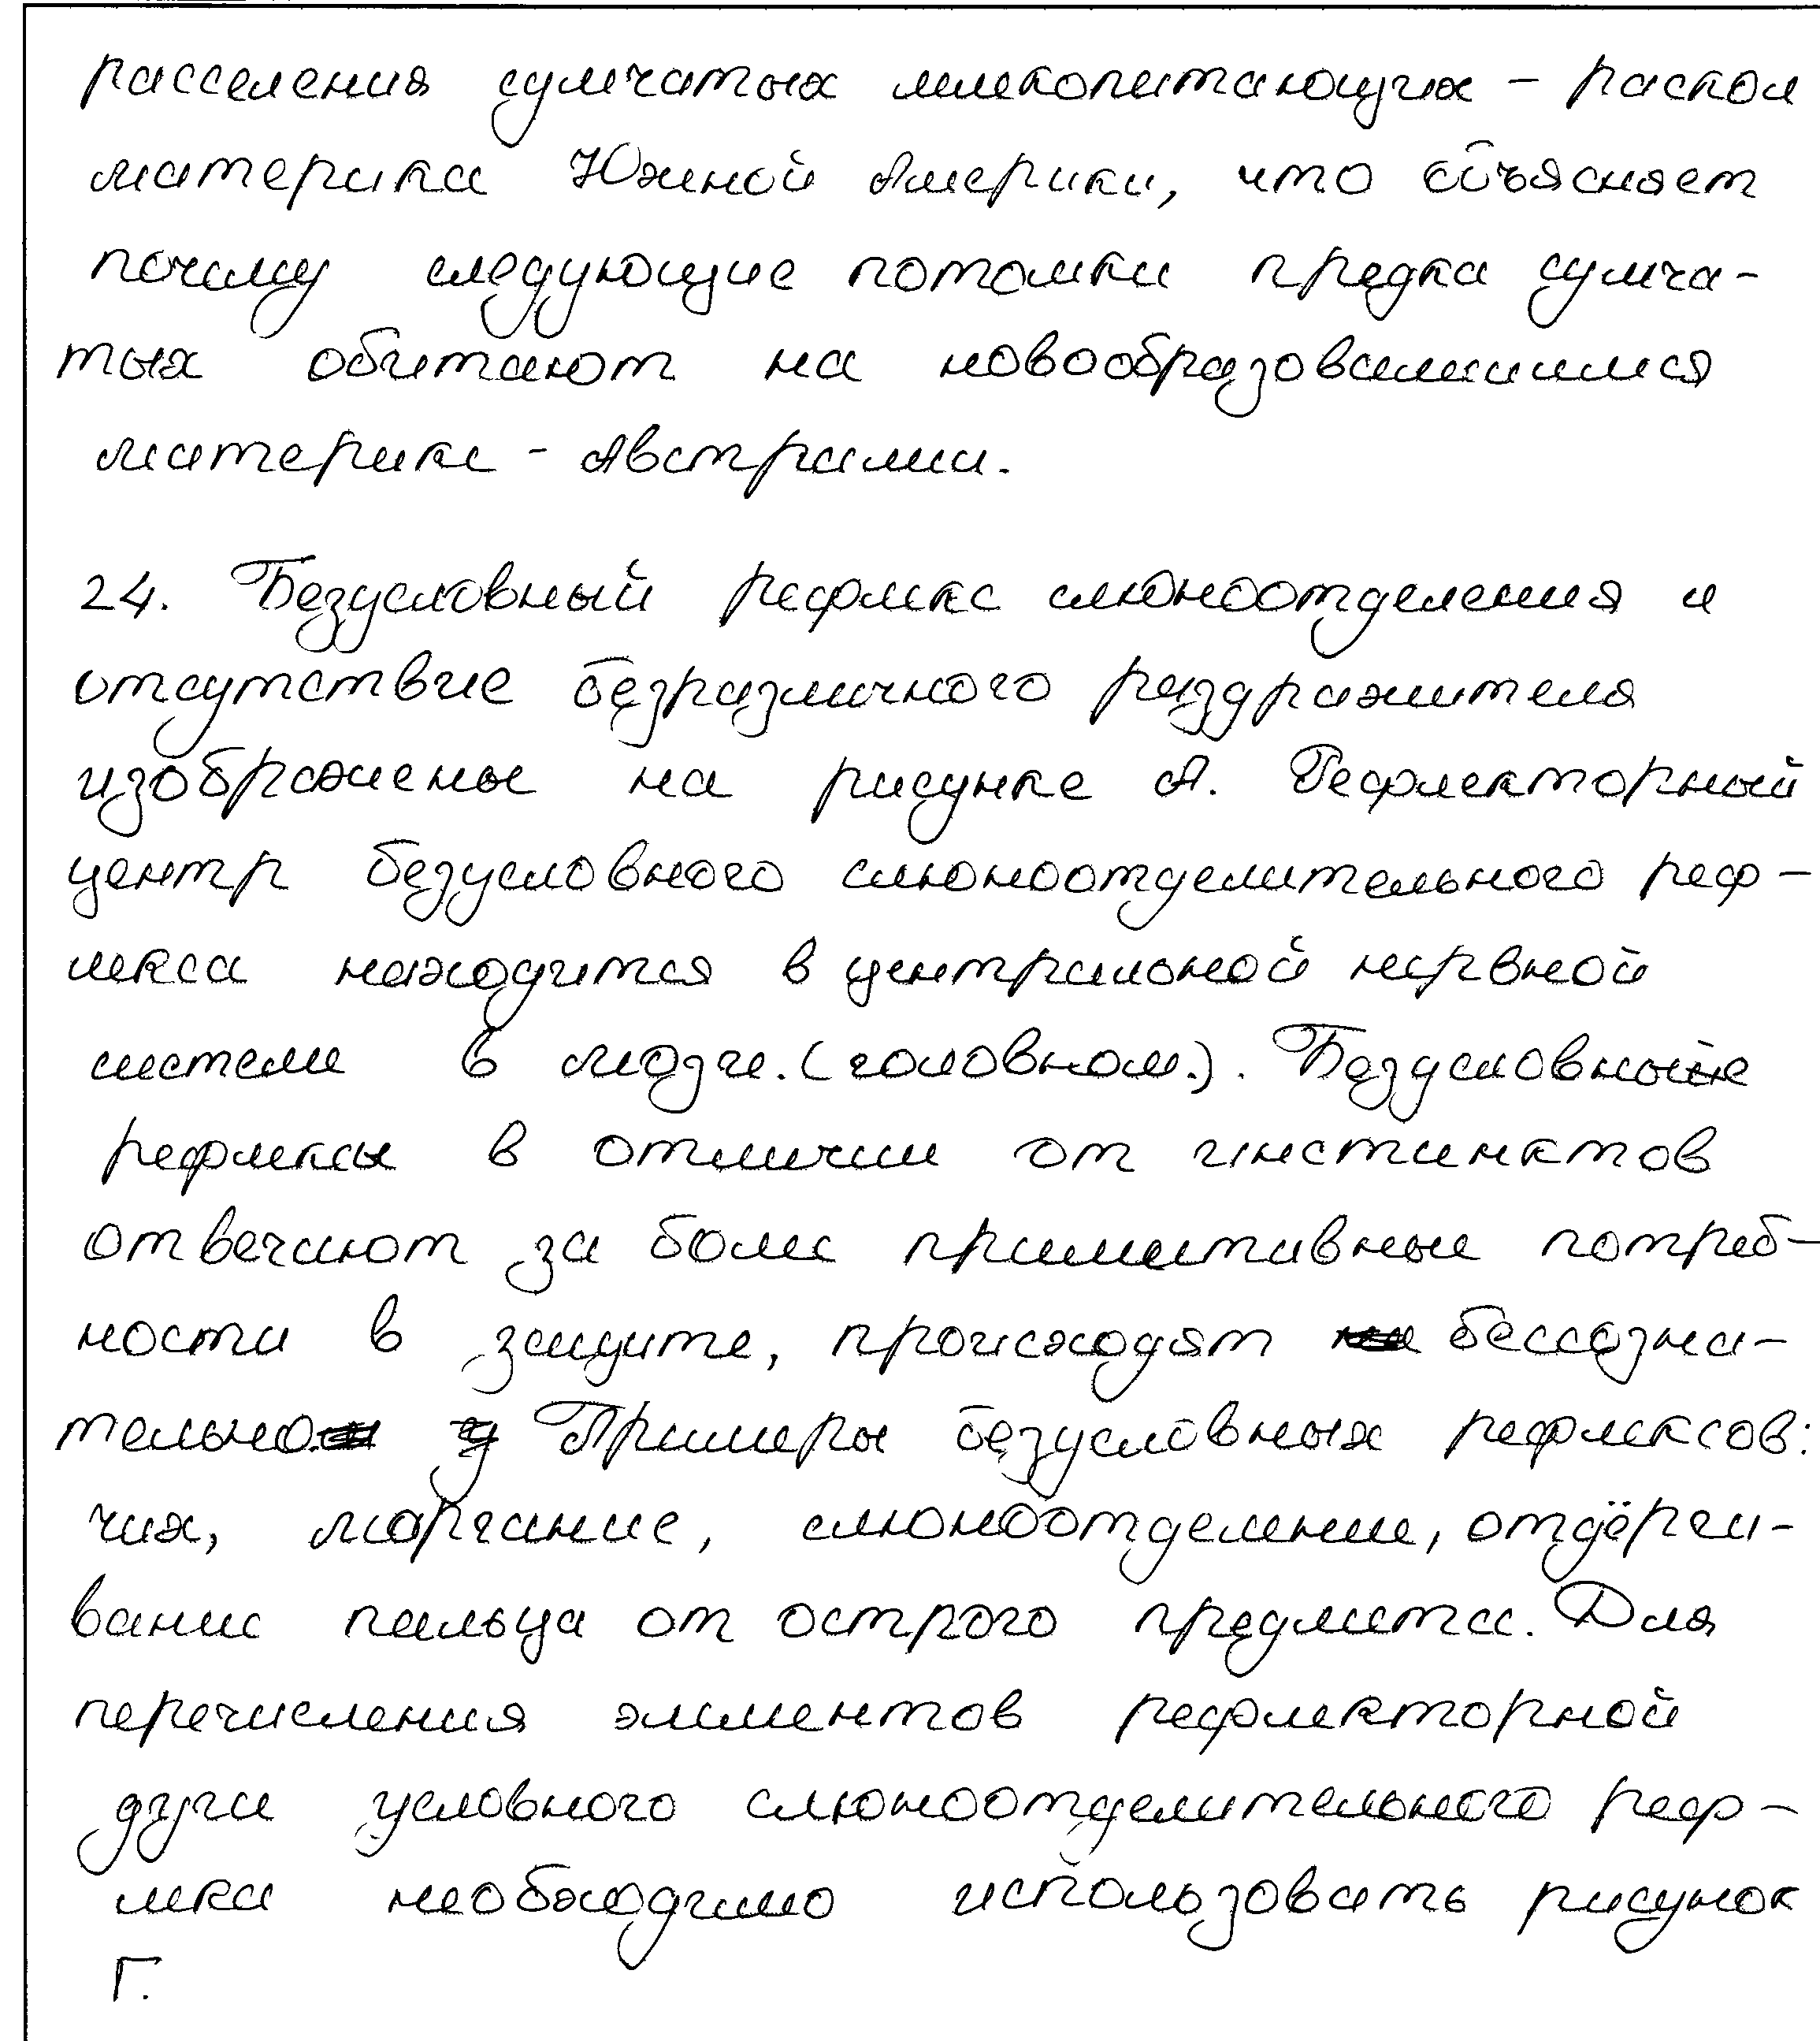 расселения сумчатых млекопитающих - раскол
материка Южной Америки, что объясняет
почему следующие потомки предка сумча-
тых обитают на новообразовавшимся
материке - Австралии.
24. Безусловный рефлекс слюноотделения и
отсутствие безразличного раздражителя
изображены на рисунке А. Рефлекторный
центр безусловного слюноотделительного реф-
лекса находится в центральной нервной
системе в мозге. (головном.). Безусловные
рефлексы в отличии от инстинктов
отвечают за более примитивные потреб-
ности в защите, происходят бессозна-
тельно. Примеры безусловных рефлексов:
чих, моргание, слюноотделение, отдёрги-
вание пальца от острого предмета. Для
перечисления элементов рефлекторной
дуги условного слюноотделительного реф-
лекса необходимо использовать рисунок
Г.